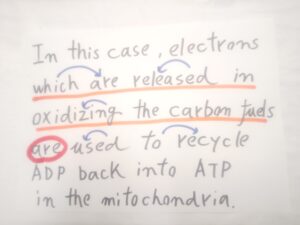 In this case, electrons
which are released in
oxidizing the carbon fuels
are used to recycle
ADP back into ATP
in the mitochondria.